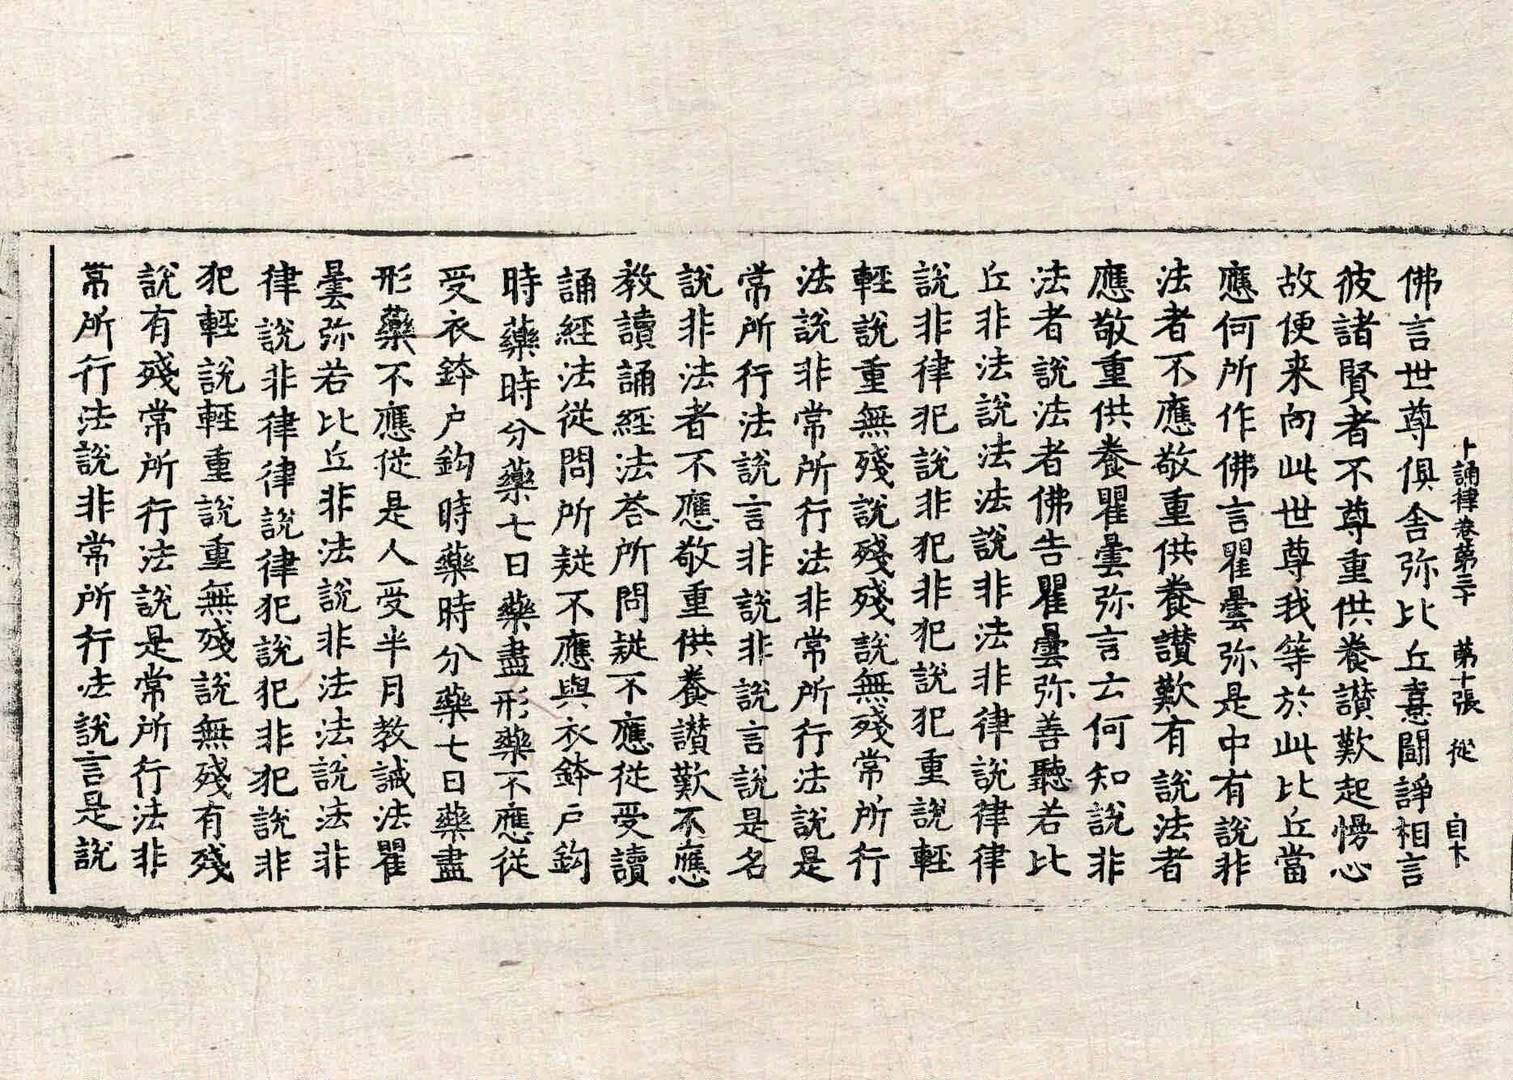 十誦律卷第三十 第十張 從 自木
佛言世尊俱舍弥比丘憙鬪諍相言
彼諸賢者不尊重供養讃歎起慢心
故便来向此世尊我等於此比丘當
應何所作佛言瞿曇弥是中有說非
法者不應敬重供養讃歎有說法者
應敬重供養瞿曇弥言云何知說非
法者說法者佛告瞿曇弥善聽若比
丘非法說法法說非法非律說律律
說非律犯說非犯非犯說犯重說輕
輕說重無殘說殘殘說無殘常所行
法說非常所行法非常所行法說是
常所行法說言非說非說言說是名
說非法者不應敬重供養讃歎不應
教讀誦經法荅所問疑不應從受讀
誦經法從問所疑不應與衣鉢户鈎
時藥時分藥七日藥盡形藥不應從
受衣鉢户鈎時藥時分藥七日藥盡
形藥不應從是人受半月教誡法瞿
曇弥若比丘非法說非法法說法非
律說非律律說律犯說犯非犯說非
犯輕說輕重說重無殘說無殘有殘
說有殘常所行法說是常所行法非
常所行法說非常所行法說言是說